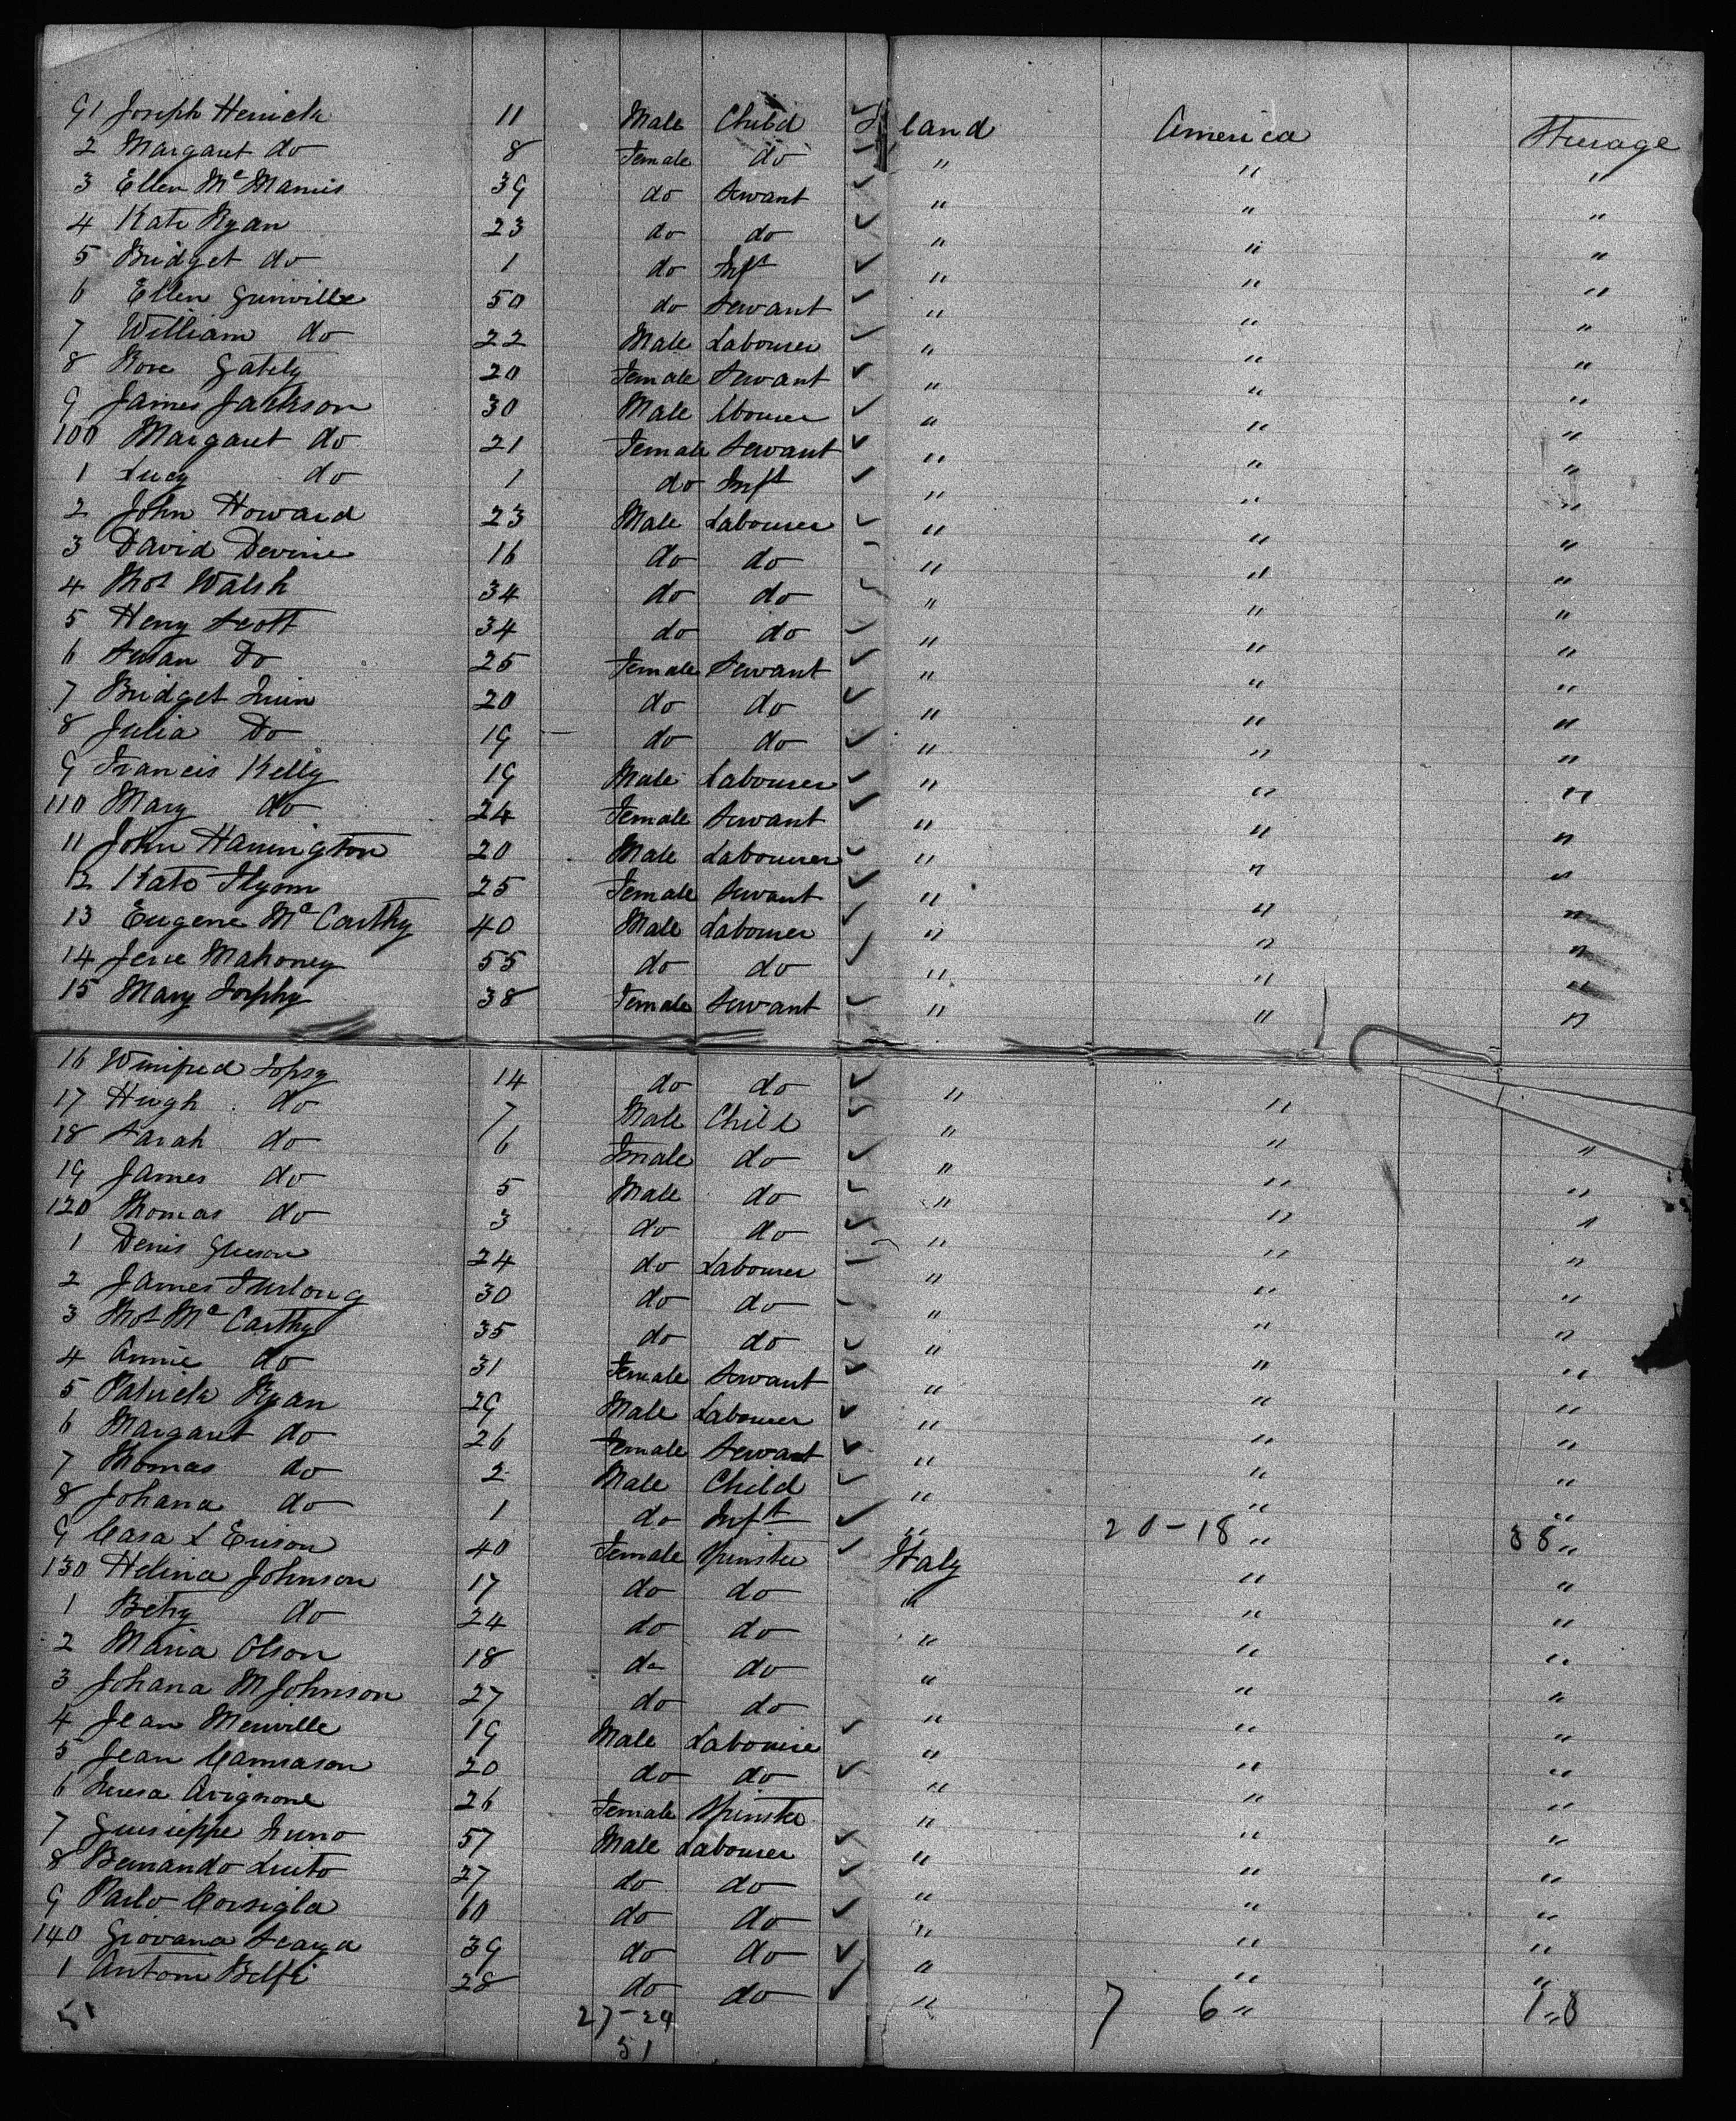 91 Joseph Herrick 11 Male Child ✓ land America Steerage
2 Margaret do 8 Female do ✓ " " "
3 Ellen Mc Manus 39 do Servant ✓ " " "
4 Kate Ryan 23 do do ✓ " " "
5 Bridget do 1 do Inft ✓ " " "
6 Ellen 50 do Servant ✓ " " "
7 William do 22 Male Labourer ✓ " " "
8 Rose Gately 20 Female Servant ✓ " " "
9 James Jackson 30 Male lbourer ✓ " " "
100 Margaret do 21 Female Servant ✓ " " "
1 Lucy do 1 do Inft ✓ " " "
2 John Howard 23 Male Labourer ✓ " " "
3 David Devine 16 do do " " "
4 Thos Walsh 34 do do ✓ " " "
5 Henry Scott 34 do do ✓ " " "
6 Susan Do 25 Female Servant ✓ " " "
7 Bridget 20 do do ✓ " " "
8 Julia Do 19 do do ✓ " " "
9 Francis Kelly 19 Male Labourer ✓ " " "
110 Mary do 24 Female Servant ✓ " " "
11 John Harrington 20 Male Labourer ✓ " " "
12 Kate Flynn 25 Female Servant ✓ " " "
13 Eugene Mc Carthy 40 Male Labourer ✓ " " "
14 Mahoney 55 do do ✓ " " "
15 Mary 38 Female Servant ✓ " " "
16 Winifred 14 do do ✓ " "
17 Hugh do 7 Male Child ✓ " " "
18 Sarah do 6 Fmale do ✓ " " "
19 James do 5 Male do ✓ " " "
120 Thomas do 3 do do ✓ " " "
1 Denis Gleeson 24 do Labourer " " "
2 James Furlong 30 do do " " "
3 Thos Mc Carthy 35 do do ✓ " " "
4 Annie do 31 Female Servant ✓ " " "
5 Patrick Ryan 29 Male Labourer ✓ " " "
6 Margaret do 26 Female Servant ✓ " " "
7 Thomas do 2 Male Child ✓ " " "
8 Johana do 1 do Inft ✓ " " "
9 Casa L Erison 40 Female Spinster ✓ Italy 20-18 " 38 "
130 Helina Johnson 17 do do " " "
1 Betsy do 24 do do " " "
2 Maria Olson 18 do do " " "
3 Johana M Johnson 27 do do " " "
4 Jean 19 Male Labourer ✓ " " "
5 Jean 20 do do ✓ " " "
6 Avignone 26 Female Spinster " " "
7 57 Male Labourer ✓ " " "
8 27 do do ✓ " " "
9 60 do do ✓ " " "
140 Giovana 39 do do ✓ " " "
1 Antoni Belfi 28 do do ✓ " 7 6 "
51 27-24
51